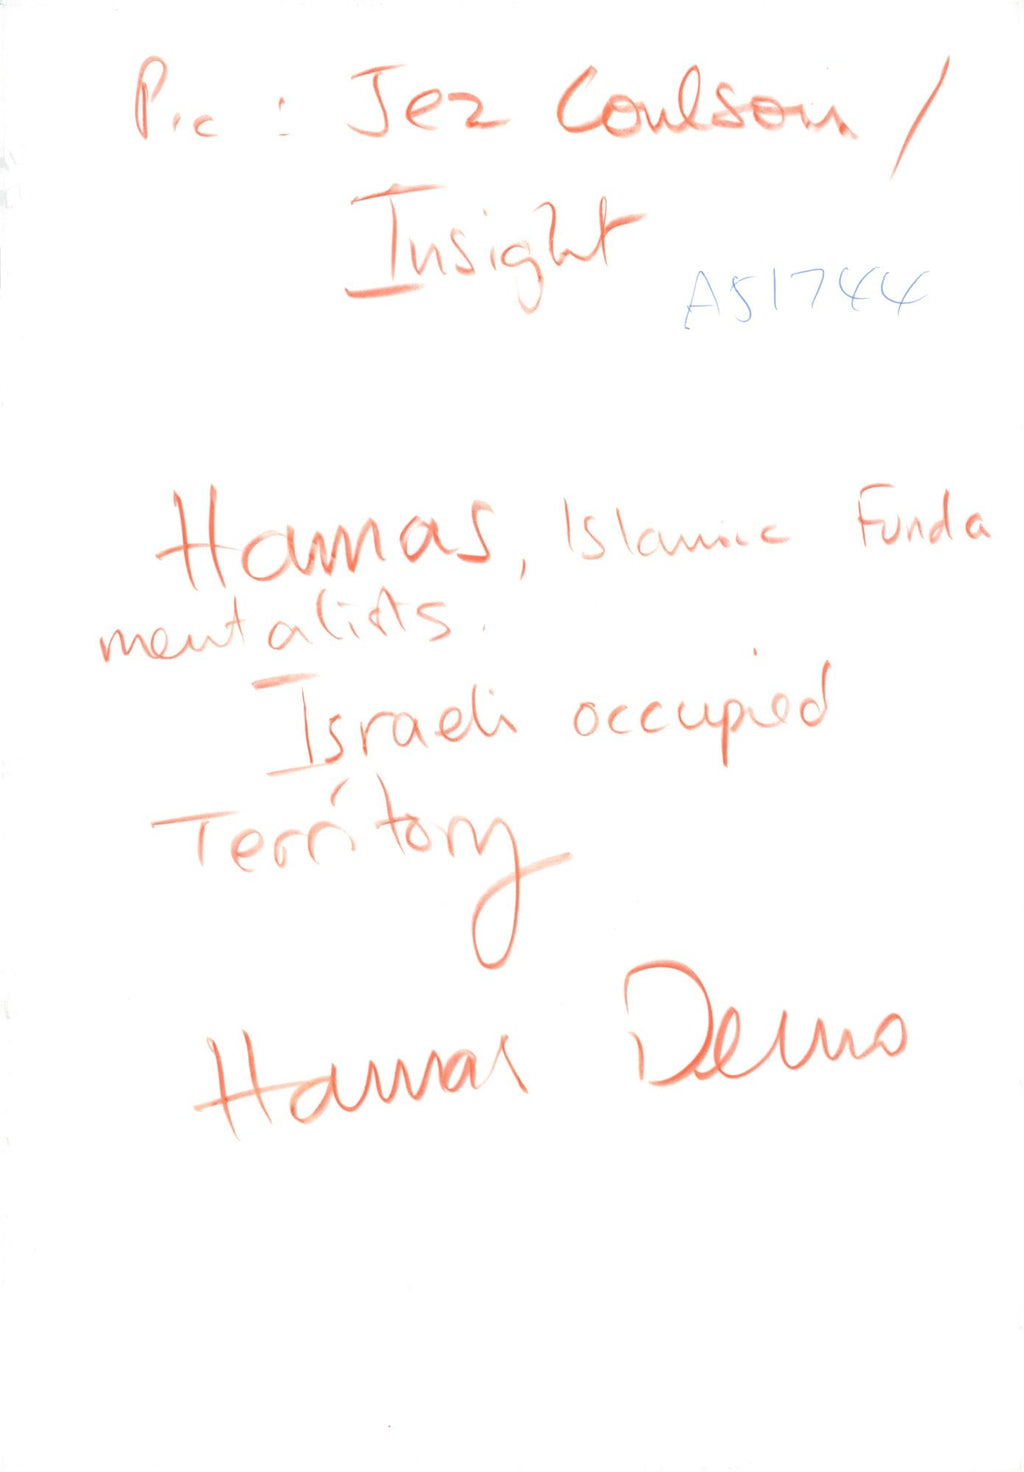 Pic : Jez Coulson /
Insight
A51744
Hamas, Islamic Funda
mentalists.
Israeli occupied
Territory
Hamas Demo